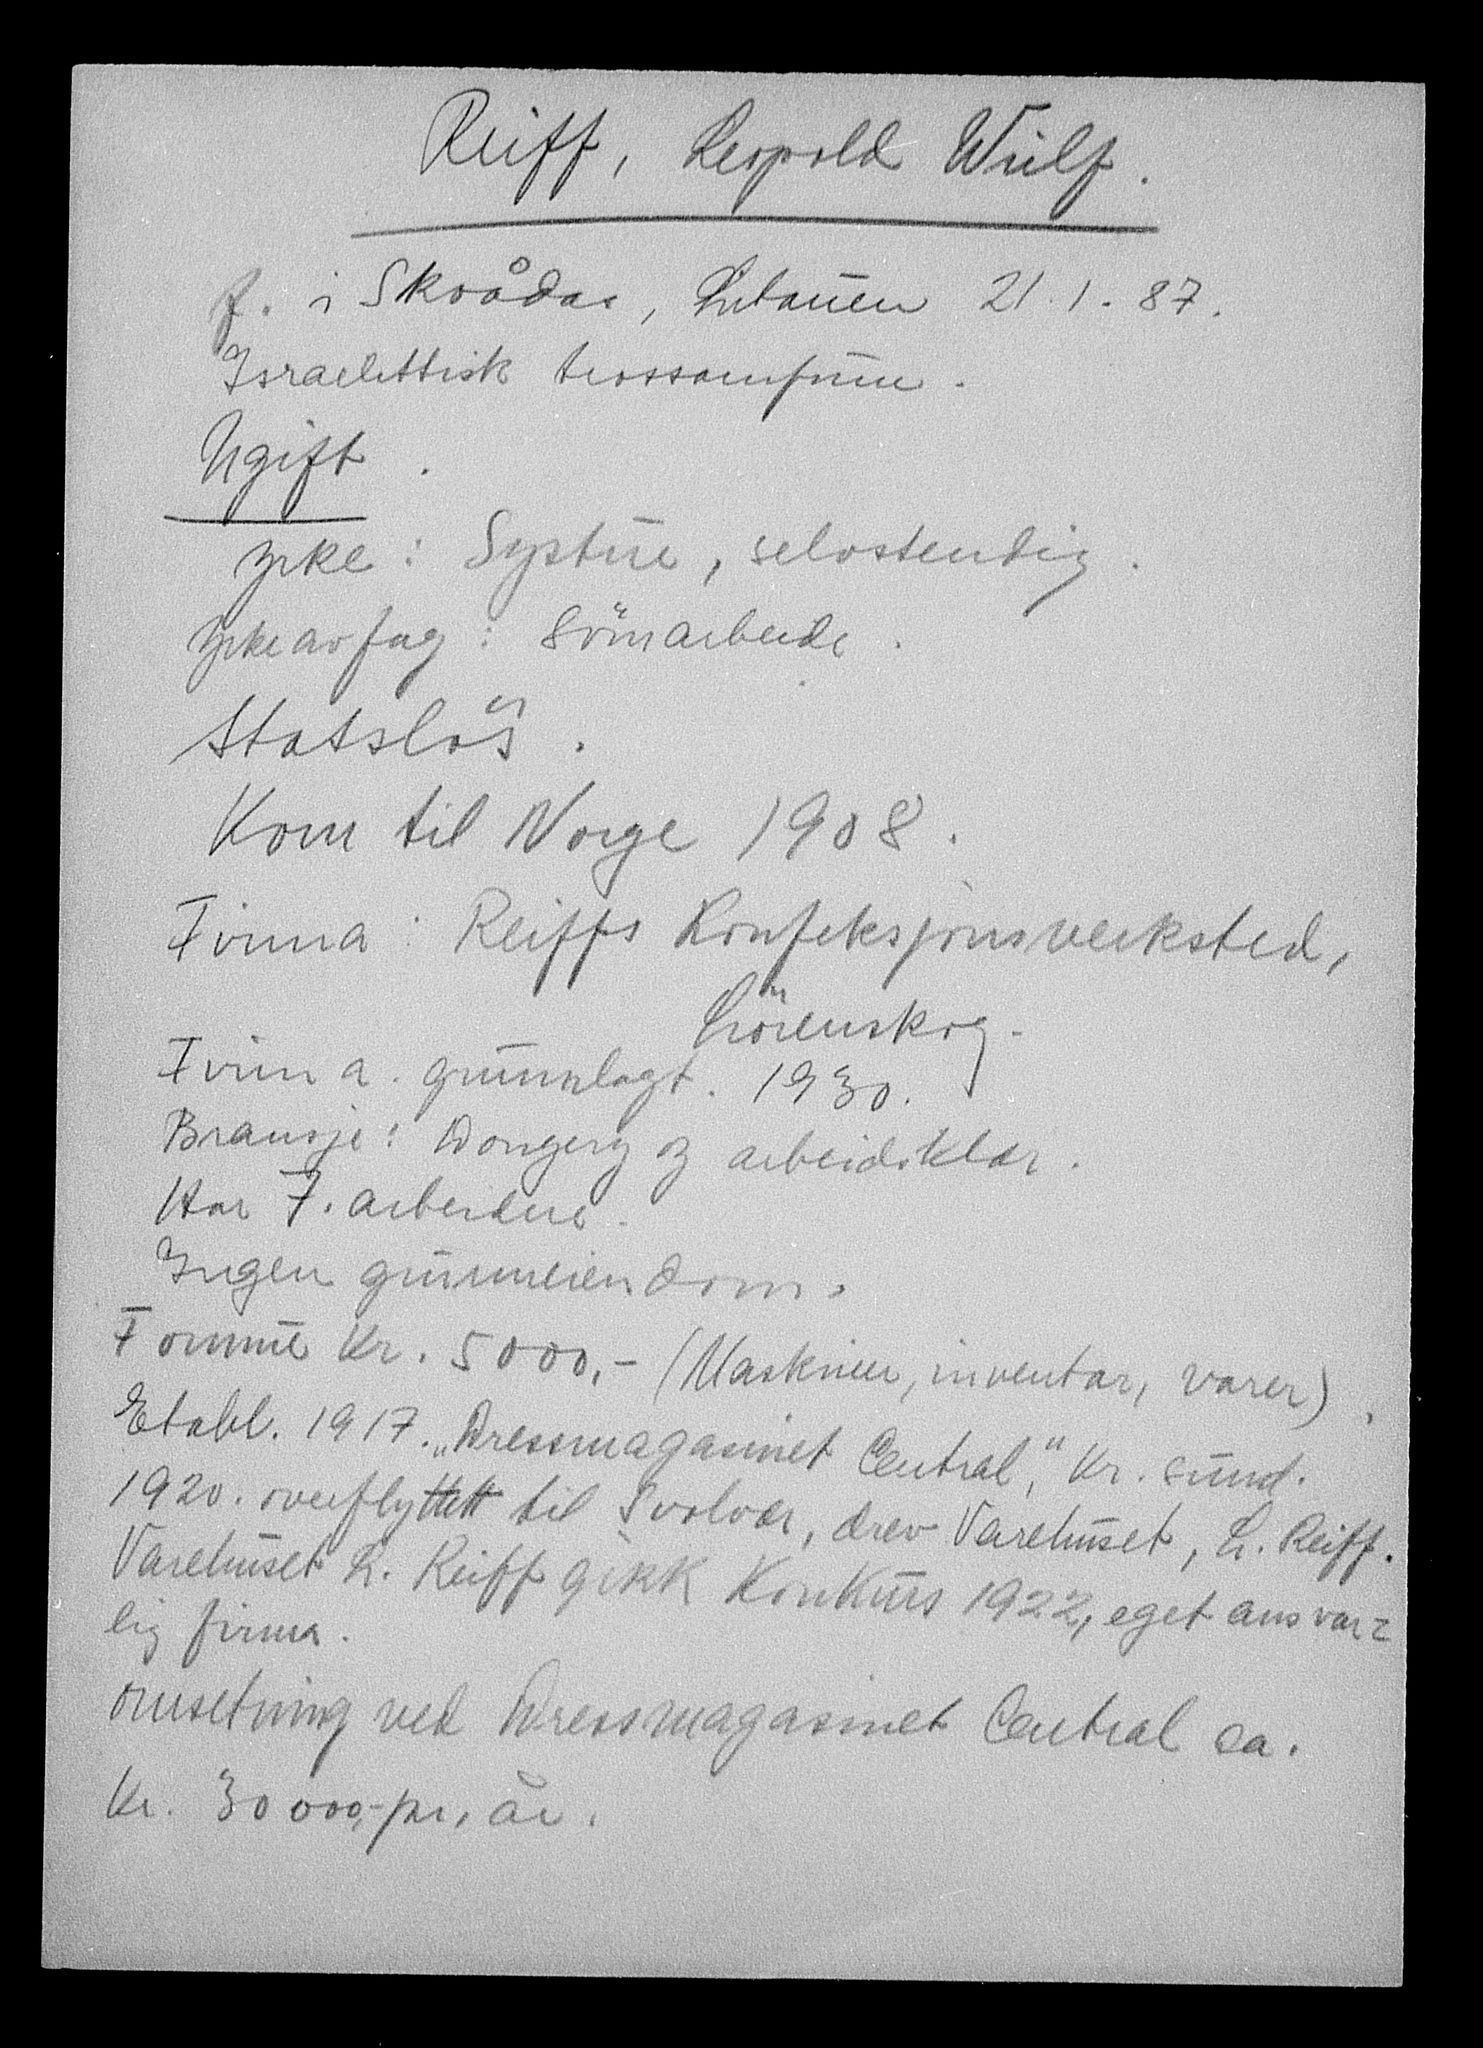 Reiff, Leopold Wulf.
f. i Skvådas, Litauen 21.1.87.
Israelittisk trossamfunn.
Ugift.
Yrke: Systue, selvstendig.
Yrke av fag: Sömarbeide.
Statslös.
Kom til Norge 1908.
Firma: Reiffs Konfeksjonsverksted,
Lörenskog.
Firma grunnlagt. 1930.
Bransje: Dongery og arbeidsklær.
Har 7. arbeidere.
Ingen grunneiendom.
Formue Kr. 5000,- (Maskiner, inventar, varer).
Etabl. 1917. „Dressmagasinet Central," Kr. sund.
1920. overflyttett til Svolvær, drev Varehuset, L. Reiff.
Varehuset L. Reiff gikk Konkurs 1922, eget ansvar=
lig firma.
omsetning ved Dressmagasinet Central ca.
Kr. 30 000,- pr, år.